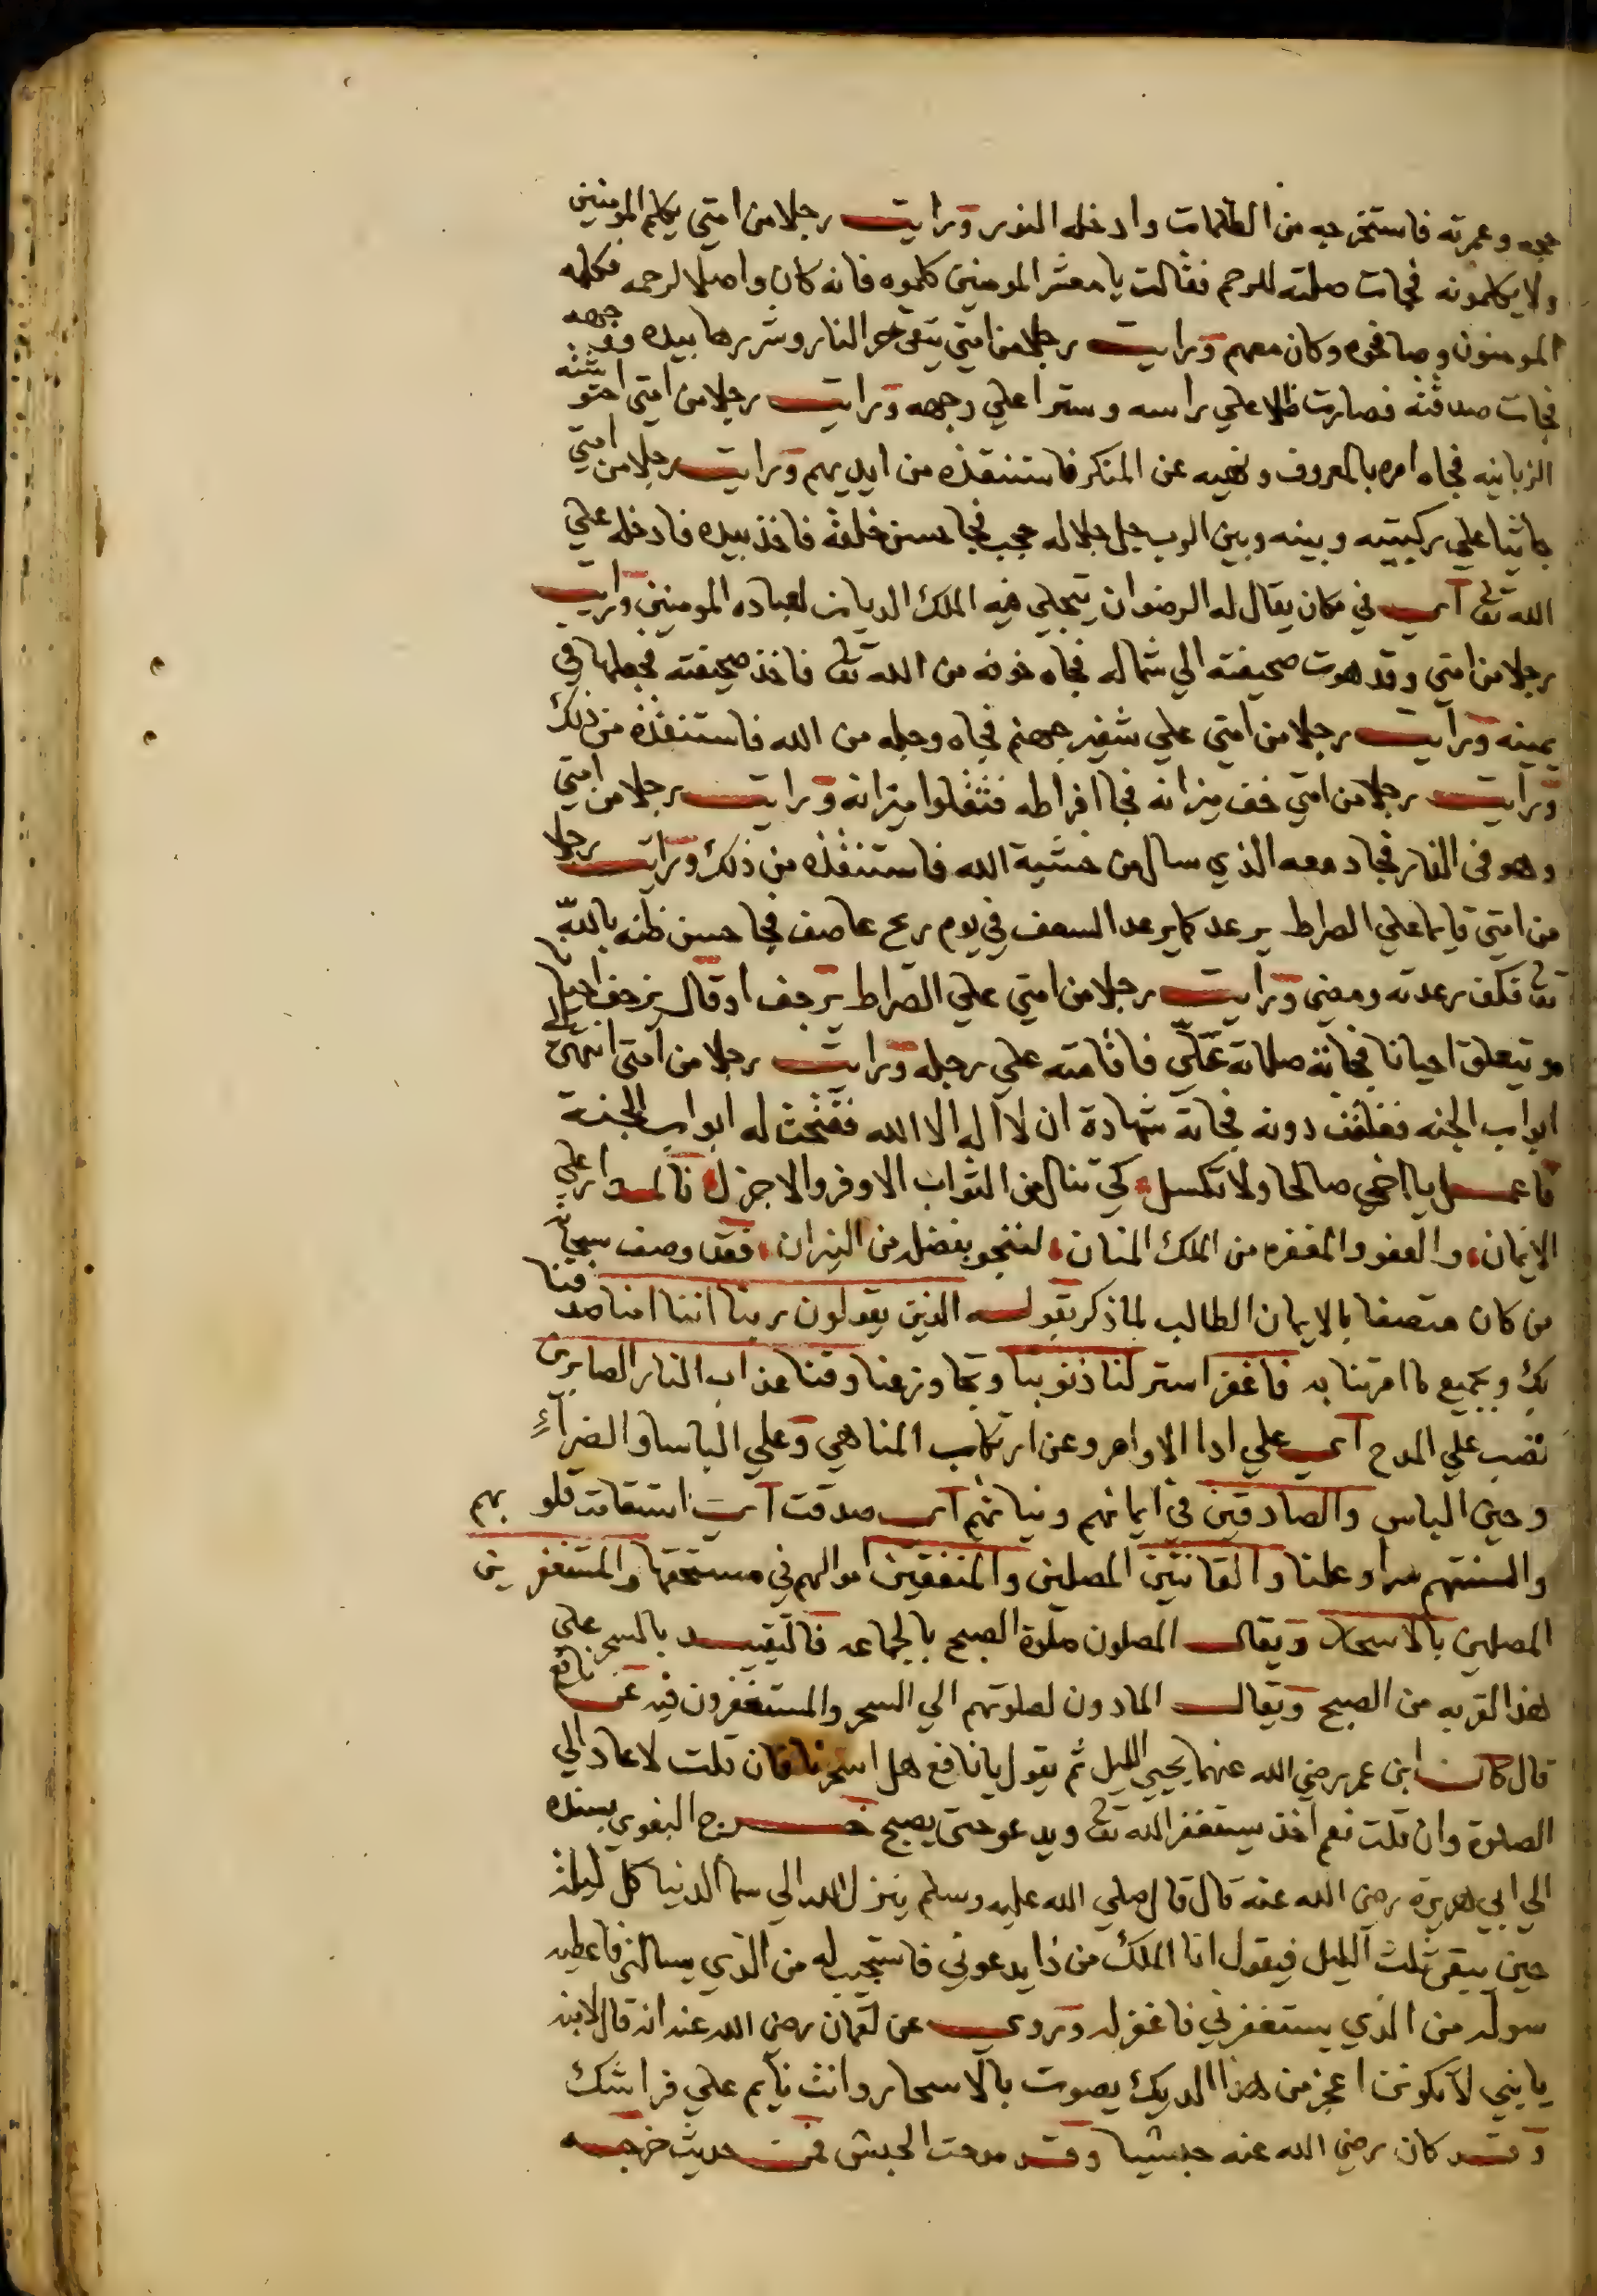 حجه وعمرته فاستخرجه من الظلمات وادخله النور ورايت رجلا من امتي يكلم المومنين
ولا يكلمونه فجات صلته للرحم فقالت يا معشر المومنين كلموه فانه كان واصلا لرحمه فكلمه
المومنون وصافحوه وكان معهم ورايت رجلا من امتي يتقي حر النار وشررها بيده ووجهه
فجات صدقته فصارت ظلا علي راسه وسترا علي وجهه ورايت رجلا من امتي احتوشته
الزبانيه فجاه امره بالمعروف ونهيه عن المنكر فاستنقذه من ايديهم ورايت رجلا من امتي
جاثيا علي ركبتيه وبينه وبين الرب جل جلاله حجب فجا حسن خلقه فاخذ بيده فادخله علي
الله تع اي في مكان يقال له الرضوان يتجلي فيه الملك الديان لعباده المومنين ورايت
رجلا من امتي وقد هوت صحيفته الي شماله فجاه خوفه من الله تع فاخذ صحيفته فجعلها في
يمينه ورايت رجلا من امتي علي شفير جهنم فجاه وجله من الله فاستنقذه من ذلك
ورايت رجلا من امتي خف ميزانه فجا افراطه فثقلوا ميزانه ورايت رجلا من امتي
وهو في النار فجا دمعه الذي سال من خشية الله فاستنقذه من ذلك ورايت رجلا
من امتي قايما علي الصراط يرعد كما يرعد السعف في يوم ريح عاصف فجا حسن ظنه بالله
تع فكف رعدته ومضي ورايت رجلا من امتي علي الصراط يرجف او قال يزحف احيانا
ويتعلق احيانا فجاته صلاته عَلَيَّ فاقامته علي رجله ورايت رجلا من امتي انتهي الي
ابواب الجنه فغلقت دونه فجاته شهادة ان لا اله الا الله ففتحت له ابواب الجنة
فاعمل يا اخي صالحا ولا تكسل كي تنال من الثواب الاوفر والاجزل فالمدار علي
الايمان والعفو والمغفره من الملك المنان لتنجو بفضله من النيران فقد وصف سبحانه
من كان متصفا بالايمان الطالب لما ذكر بقوله الذين يقولون ربنا اننا امنا صدقنا
بك وبجميع ما امرتنا به فاغفر استر لنا ذنوبنا وتجاوز عنا وقنا عذاب النار الصابرين
نصب علي المدح اي علي ادا الاوامر وعن ارتكاب المناهي وعلي الباسا والضرآءِ
وحين الباس والصادقين في ايمانهم ونياتهم اي صدقت اي استقامت قلوبهم
والسنتهم سرا وعلنا والقانتين المصلين والمنفقين اموالهم في مستحقها والمستغفرين
المصلين بالاسحار ويقال المصلون صلوة الصبح بالجماعه فالتقييد بالسحر علي
هذا لقربه من الصبح ويقال المادون لصلوتهم الي السحر والمستغفرون فيه عن نافع
قال كان ابن عمر رضي الله عنهما يحيي الليل ثم يقول يا نافع هل اسحرنا فان قلت لا عاد الي
الصلوة وان قلت نعم اخذ يستغفر الله تع ويدعو حتى يصبح خرج البغوي بسنده
الي ابي هريرة رضي الله عنه قال قال صلي الله عليه وسلم ينزل الله الي سما الدنيا كل ليلة
حين يبقى ثلث الليل فيقول انا الملك من ذا يدعوني فاستجيب له من الذي يسالني فاعطيه
سوله من الذي يستغفرني فاغفر له وروي عن لقمان رضي الله عنه انه قال لابنه
يا بني لا تكونن اعجز من هذا الديك يصوت بالاسحار وانت نايم علي فراشك
وقد كان رضي الله عنه حبشيا وقد مدحت الحبش في حديث خرجه